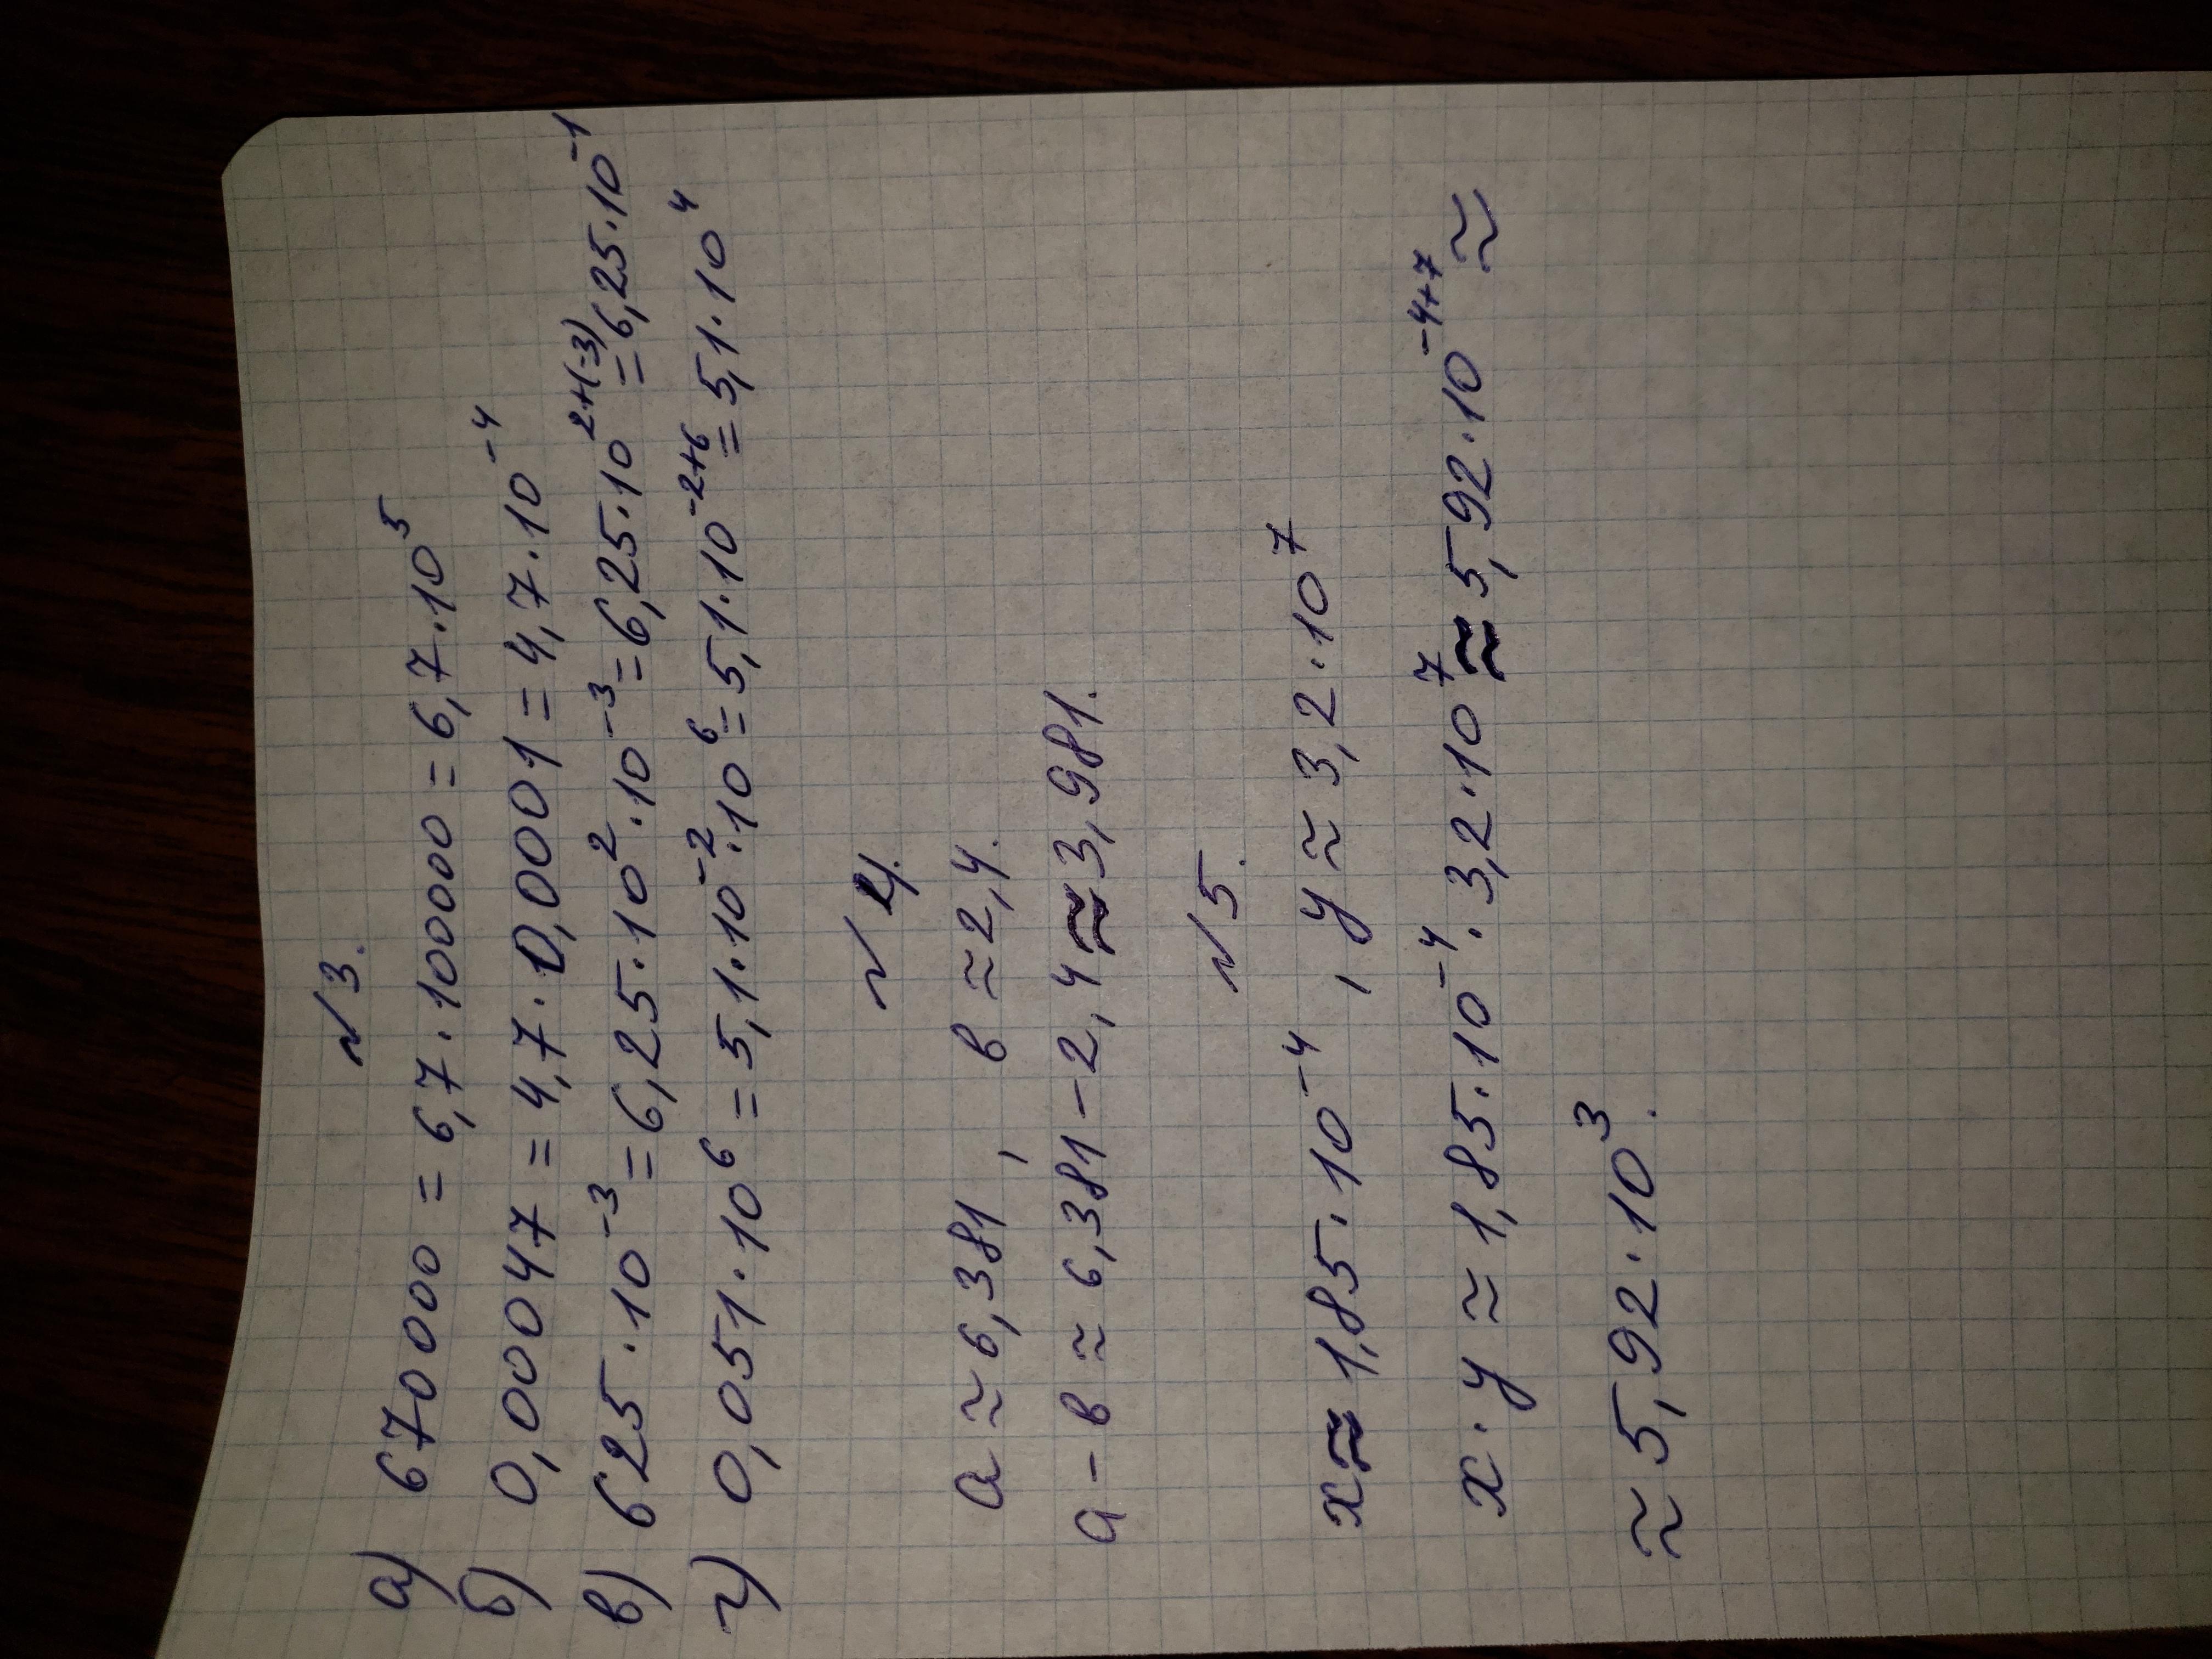 N 3.
а) 670000 = 6,7·100000 = 6,7·10⁵
б) 0,00047 = 4,7·0,0001 = 4,7·10⁻⁴
в) 625·10⁻³ = 6,25·10²·10⁻³ = 6,25·10²⁺⁽⁻³⁾ = 6,25·10⁻¹
г) 0,051·10⁶ = 5,1·10⁻²·10⁶ = 5,1·10⁻²⁺⁶ = 5,1·10⁴
N 4.
а ≈ 6,381 , в ≈ 2,4.
а - в ≈ 6,381 - 2,4 ≈ 3,981.
N 5.
х ≈ 1,85·10⁻⁴ , у ≈ 3,2·10⁷
х·у ≈ 1,85·10⁻⁴·3,2·10⁷ ≈ 5,92·10⁻⁴⁺⁷ ≈
≈ 5,92·10³.